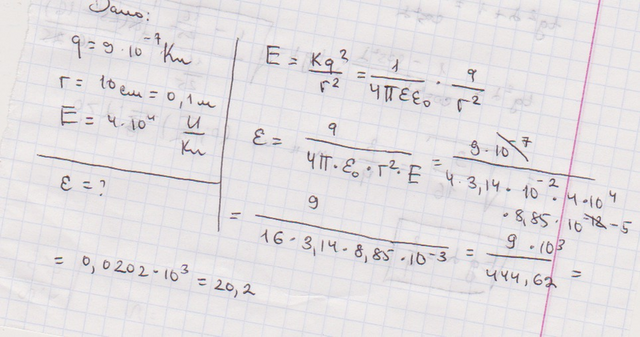 Дано:
q = 9·10⁻⁷ Кл
r = 10 см = 0,1 м
E = 4·10⁴ И/Кл
ε = ?
E = Kq²/r² = 1/4πεε₀ · q/r²
ε = q/4π·ε₀·r²·E = 9·10⁻⁷/4·3,14·10⁻²·4·10⁴·8,85·10⁻¹² -5
= 9/16·3,14·8,85·10⁻³ = 9·10³/444,62 =
= 0,0202·10³ = 20,2